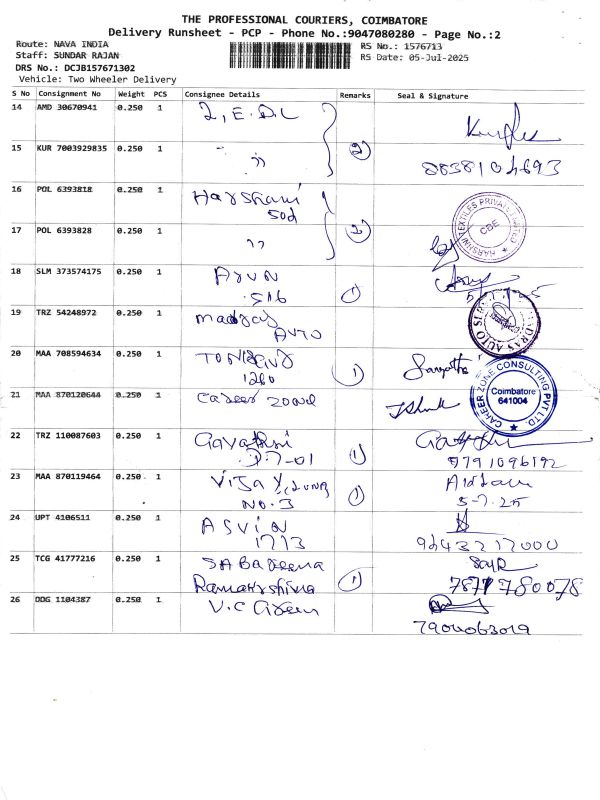 THE PROFESSIONAL COURIERS, COIMBATORE
Delivery Runsheet - PCP - Phone No.:9047080280 - Page No.:2
Route: NAVA INDIA
Staff: SUNDAR RAJAN
DRS No.: DCJB157671302
Vehicle: Two Wheeler Delivery
RS No.: 1576713
RS Date: 05-Jul-2025
S No Consignment No Weight PCS Consignee Details Remarks Seal & Signature
14 AMD 30670941 0.250 1
15 KUR 7003929835 0.250 1 " 2
8838104693
16 POL 6393818 0.250 1 Harshani
HARSHNI TEXTILES PRIVATE LIMITED CBE
17 POL 6393828 0.250 1 " 2
18 SLM 373574175 0.250 1 Arun
516 1
19 TRZ 54248972 0.250 1 madras
AUTO
MADRAS AUTO SERVICE
20 MAA 708594634 0.250 1
1260 1
21 MAA 870120644 0.250 1 career zone
CAREER ZONE CONSULTING PVT LTD. Coimbatore 641004
22 TRZ 110087603 0.250 1 Gayathri
1
9791096192
23 MAA 870119464 0.250 1 Vijay
NO.3 1 5-7-25
24 UPT 4106511 0.250 1 ASVIN
1773
9643217000
25 TCG 41777216 0.250 1 SABAREENA
Ramakrishna 1
7871780078
26 DDG 1104387 0.250 1 V.C Green
7904063019